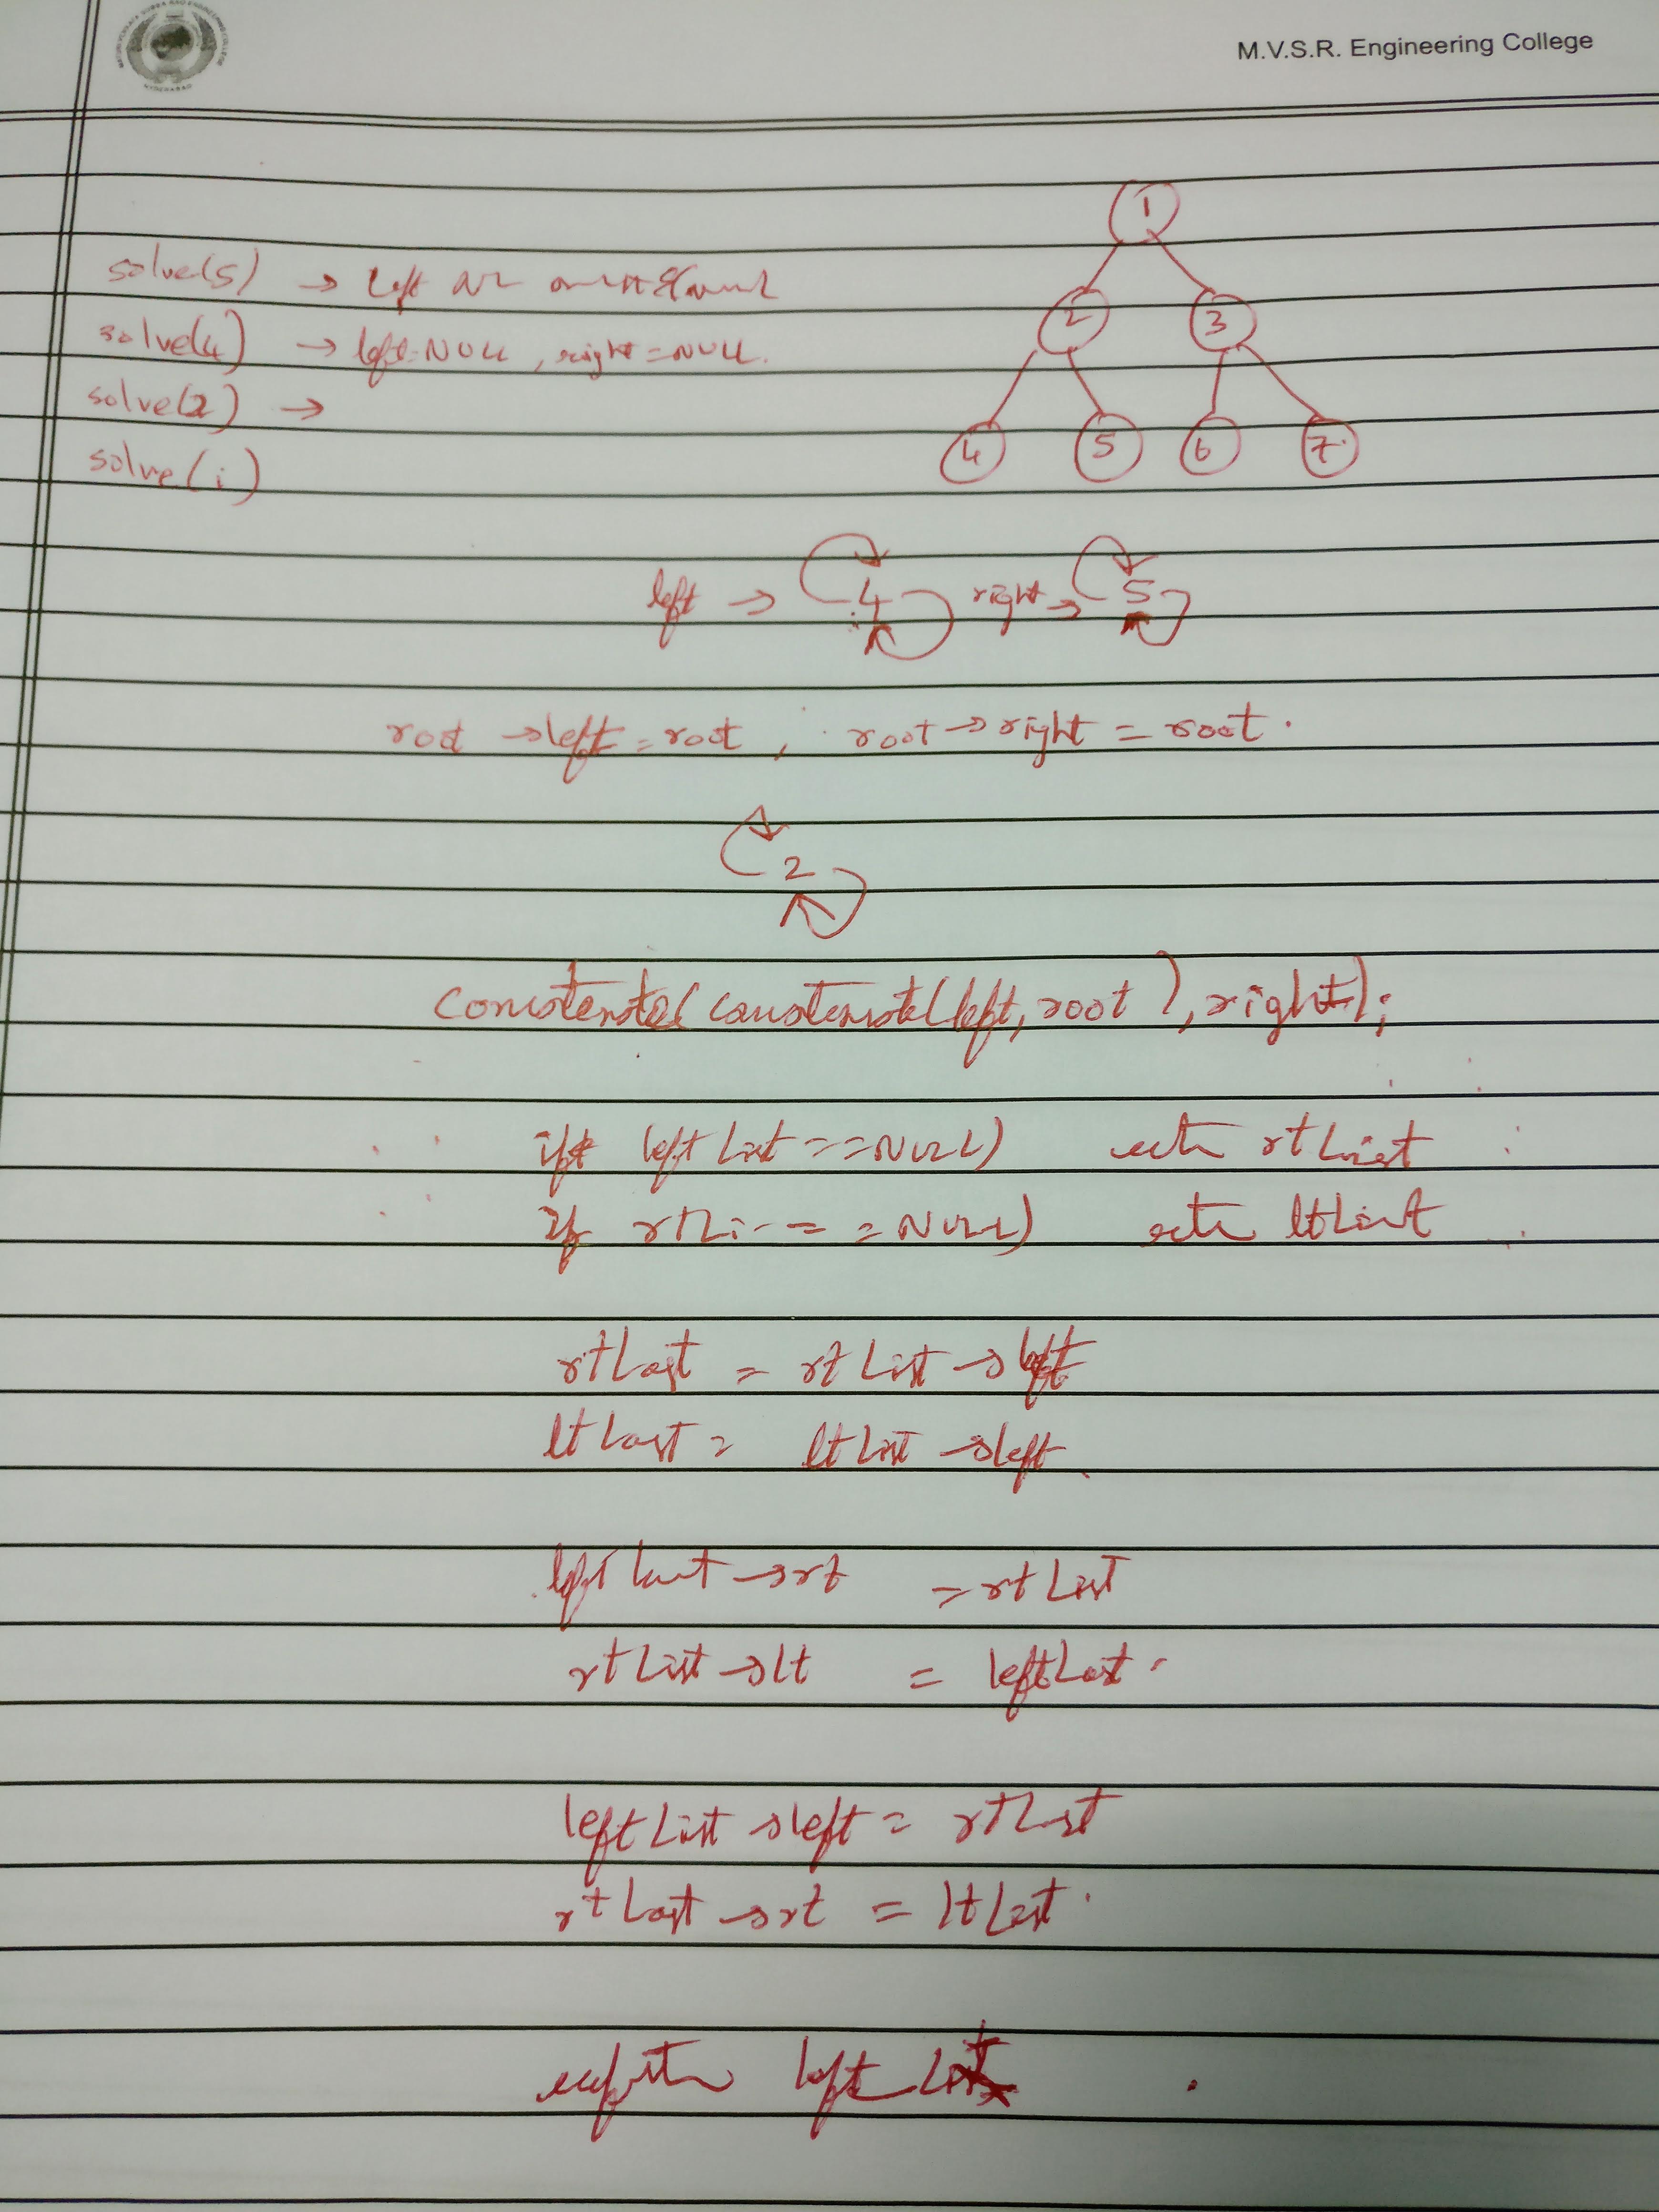 M.V.S.R. Engineering College
1
solve(5) → left
2 3
solve(4) → left=NULL, right=NULL.
solve(2) →
4 5 6 7
solve(i)
left → 4 right → 5
root →left = root, root→right = root.
2
(left, root), right);
if leftList ==NULL) rtList
If == NULL) ltList
rtLast = rtList →left
ltLast = ltList →left
leftLast →rt = rtList
rtList →lt = leftLast.
leftList →left = rtLast
rtLast →rt = ltList.
left List